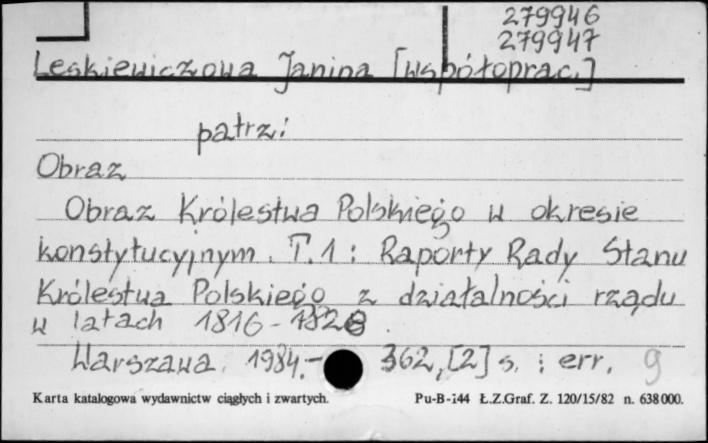 279946
279947
Leskiewiczowa Janina [współoprac.]
patrz:
Obraz
Obraz Królestwa Polskiego w okresie
konstytucyjnym. T.1: Raporty Rady Stanu
Królestwa Polskiego z działalności rządu
w latach 1816-1828.
Warszawa 1984.- 362,[2] s. ; err. 9
Karta katalogowa wydawnictw ciągłych i zwartych. Pu-B-144 Ł.Z.Graf. Z. 120/15/82 n. 638000.